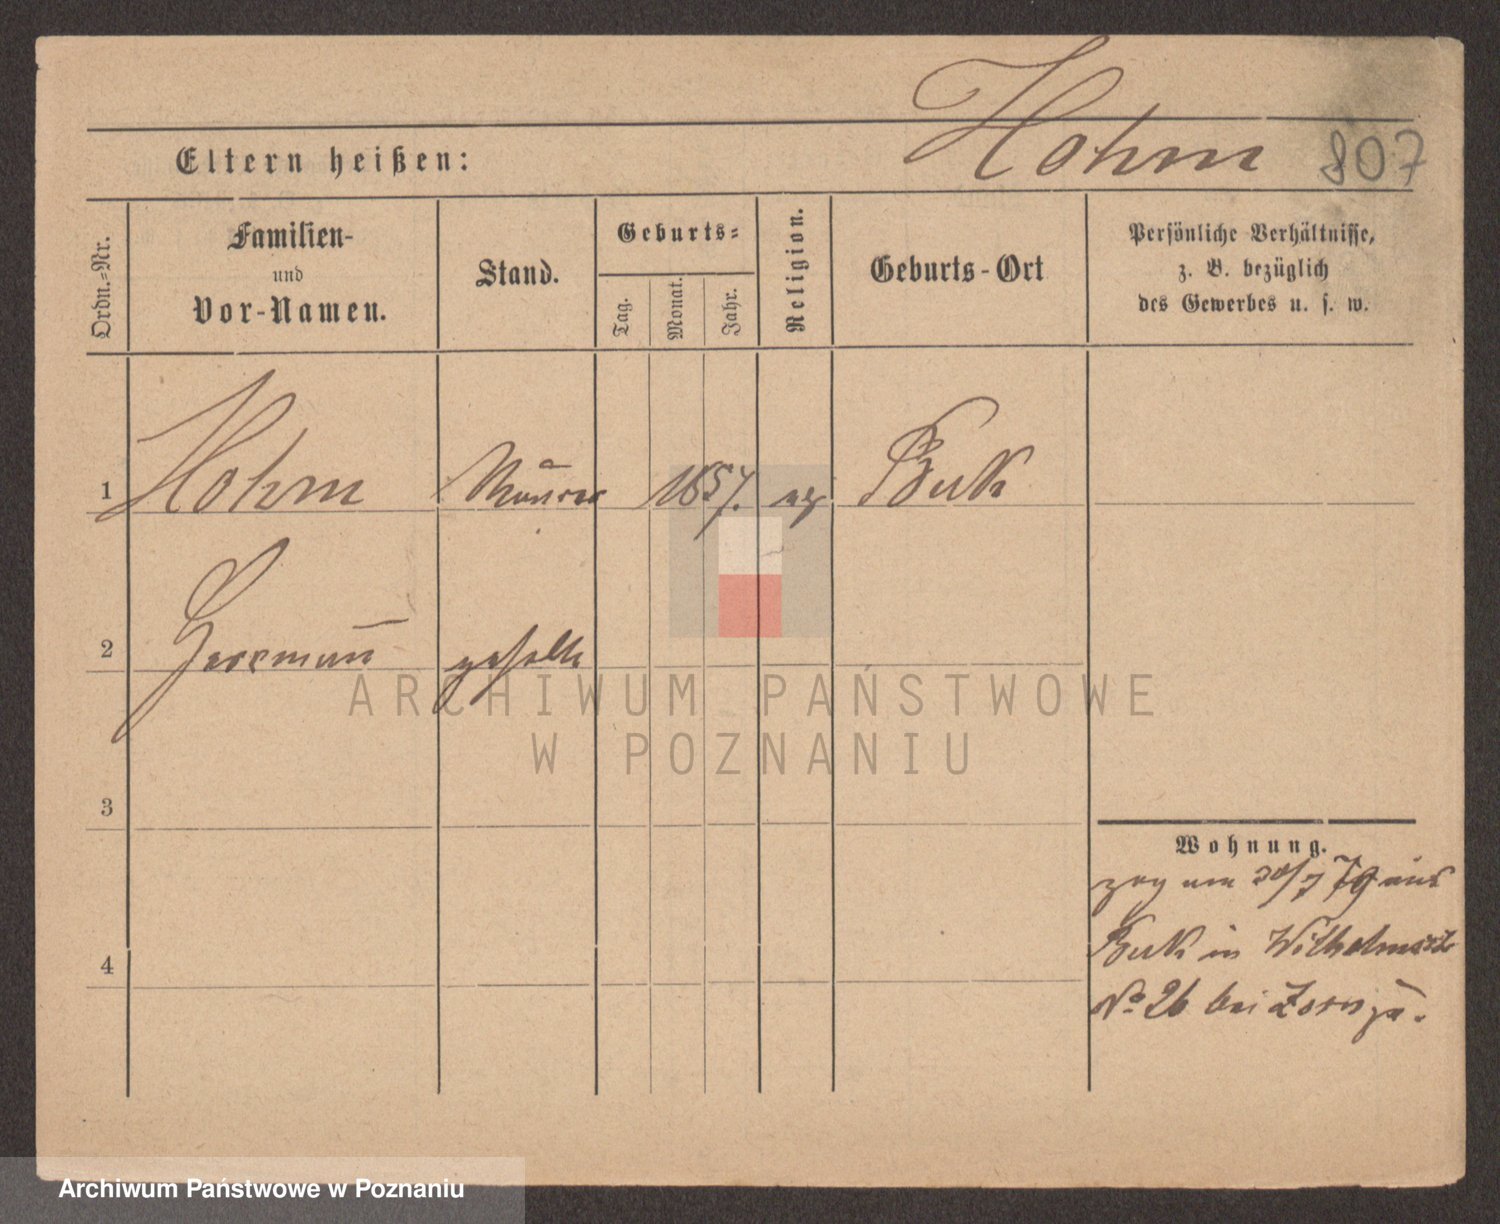 Hohm 807
Eltern heißen:
Ordn.-Nr.
Familien-
und
Vor-Namen.
Stand.
Geburts-
Tag.
Monat.
Jahr.
Religion.
Geburts-Ort
Persönliche Verhältnisse,
z. B. bezüglich
des Gewerbes u. s. w.
1 Hohm Maurer 1857. Buk
2 Herrmann geselle
3
4
Wohnung.
zog am 30/7 79 aus
Buk in Wilhelmsstr
No 26 bei
ARCHIWUM PAŃSTWOWE
W POZNANIU
Archiwum Państwowe w Poznaniu